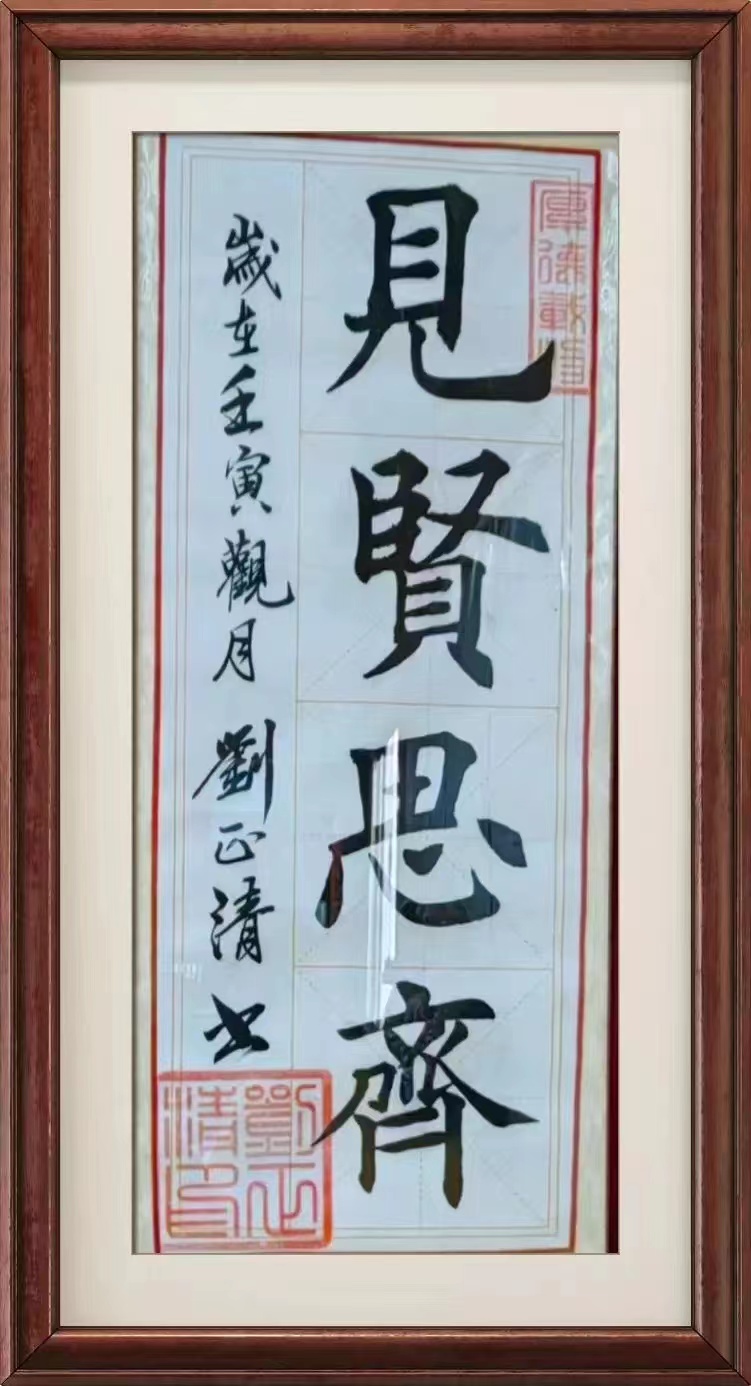 厚德載物
見賢思齊
歲在壬寅觀月劉正清書
劉正清印